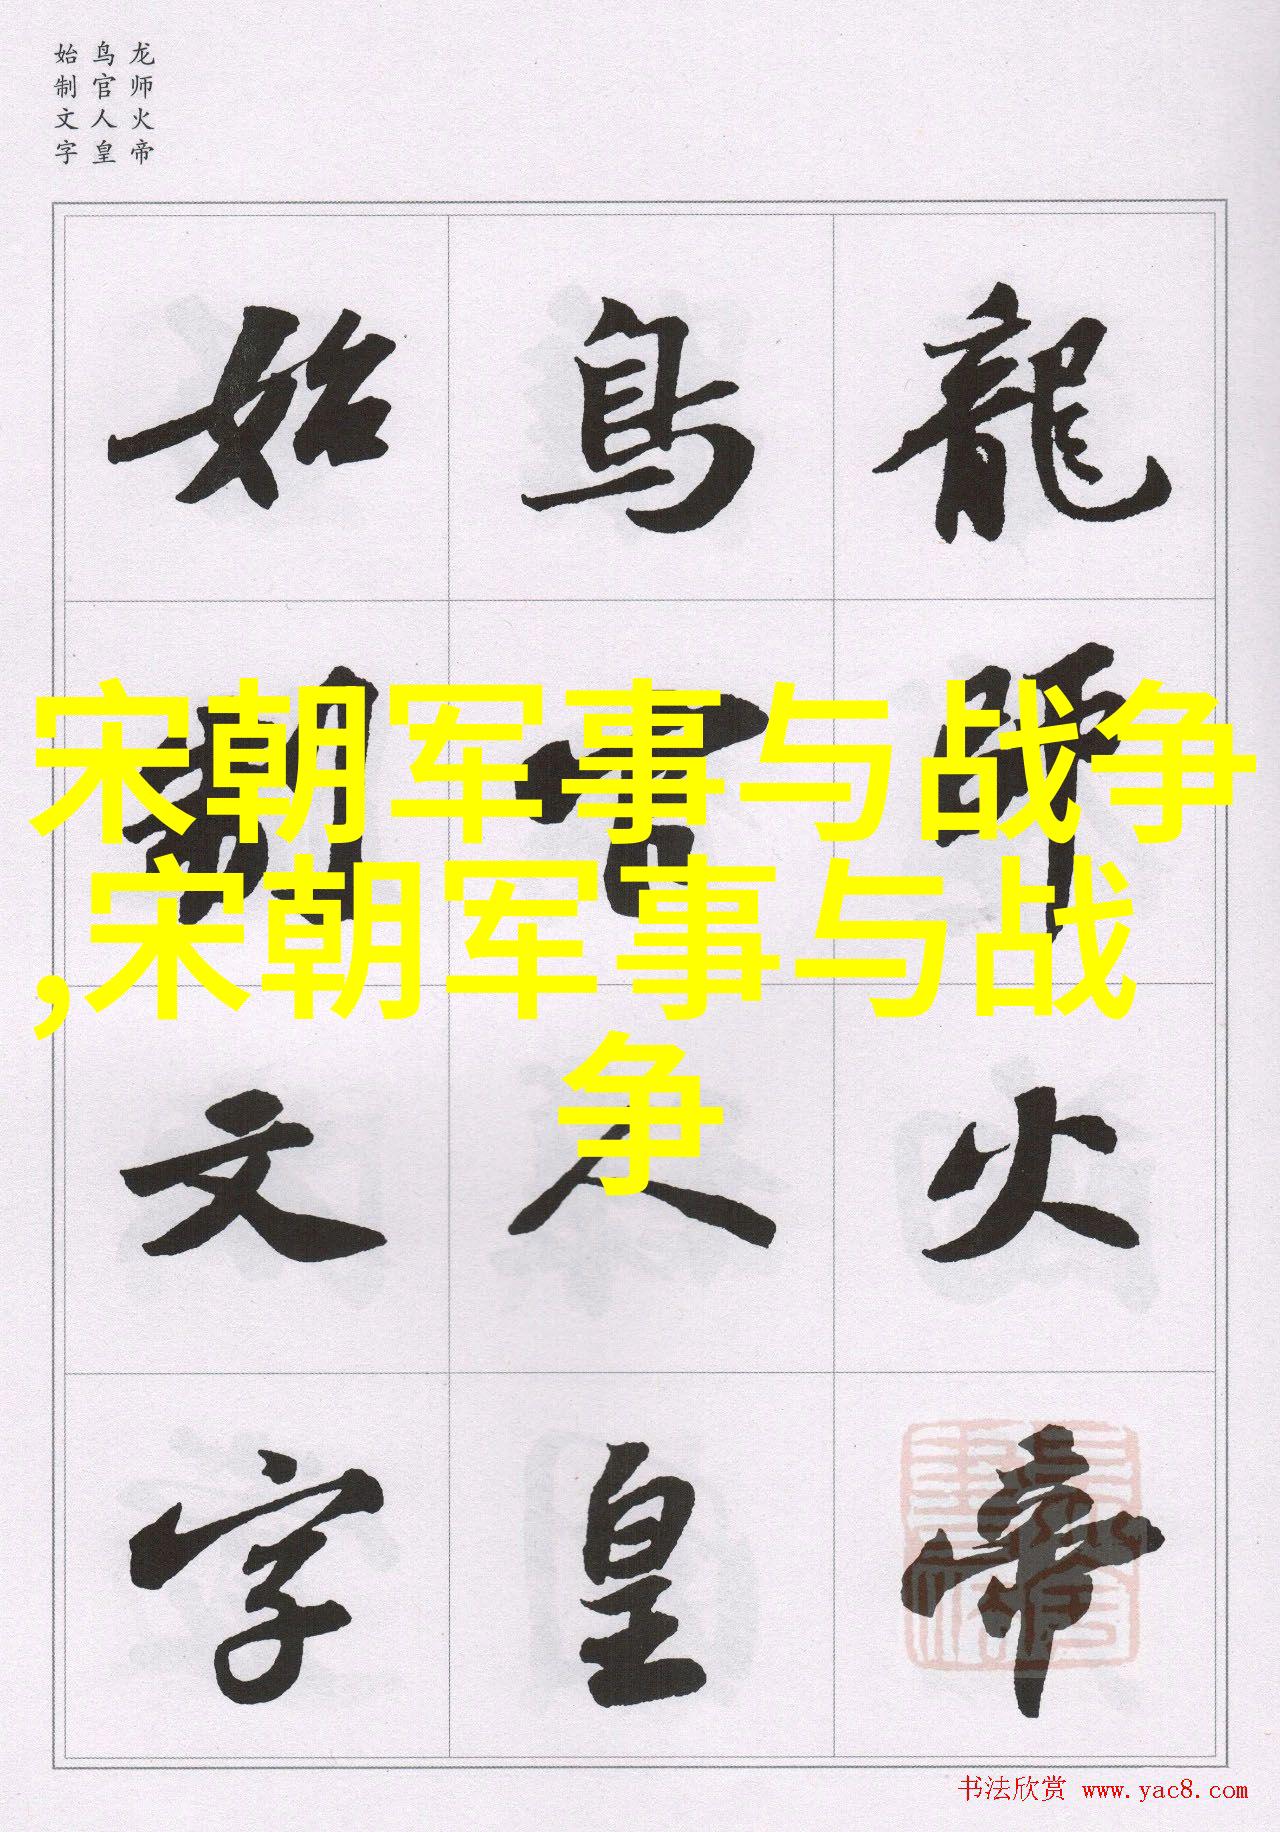 龙师火帝
鸟官人皇
始制文字
龍師火帝
鳥官人皇
始制文字
宋朝军事与战争
,宋朝军事与战
争
书法欣赏 www.yac8.com